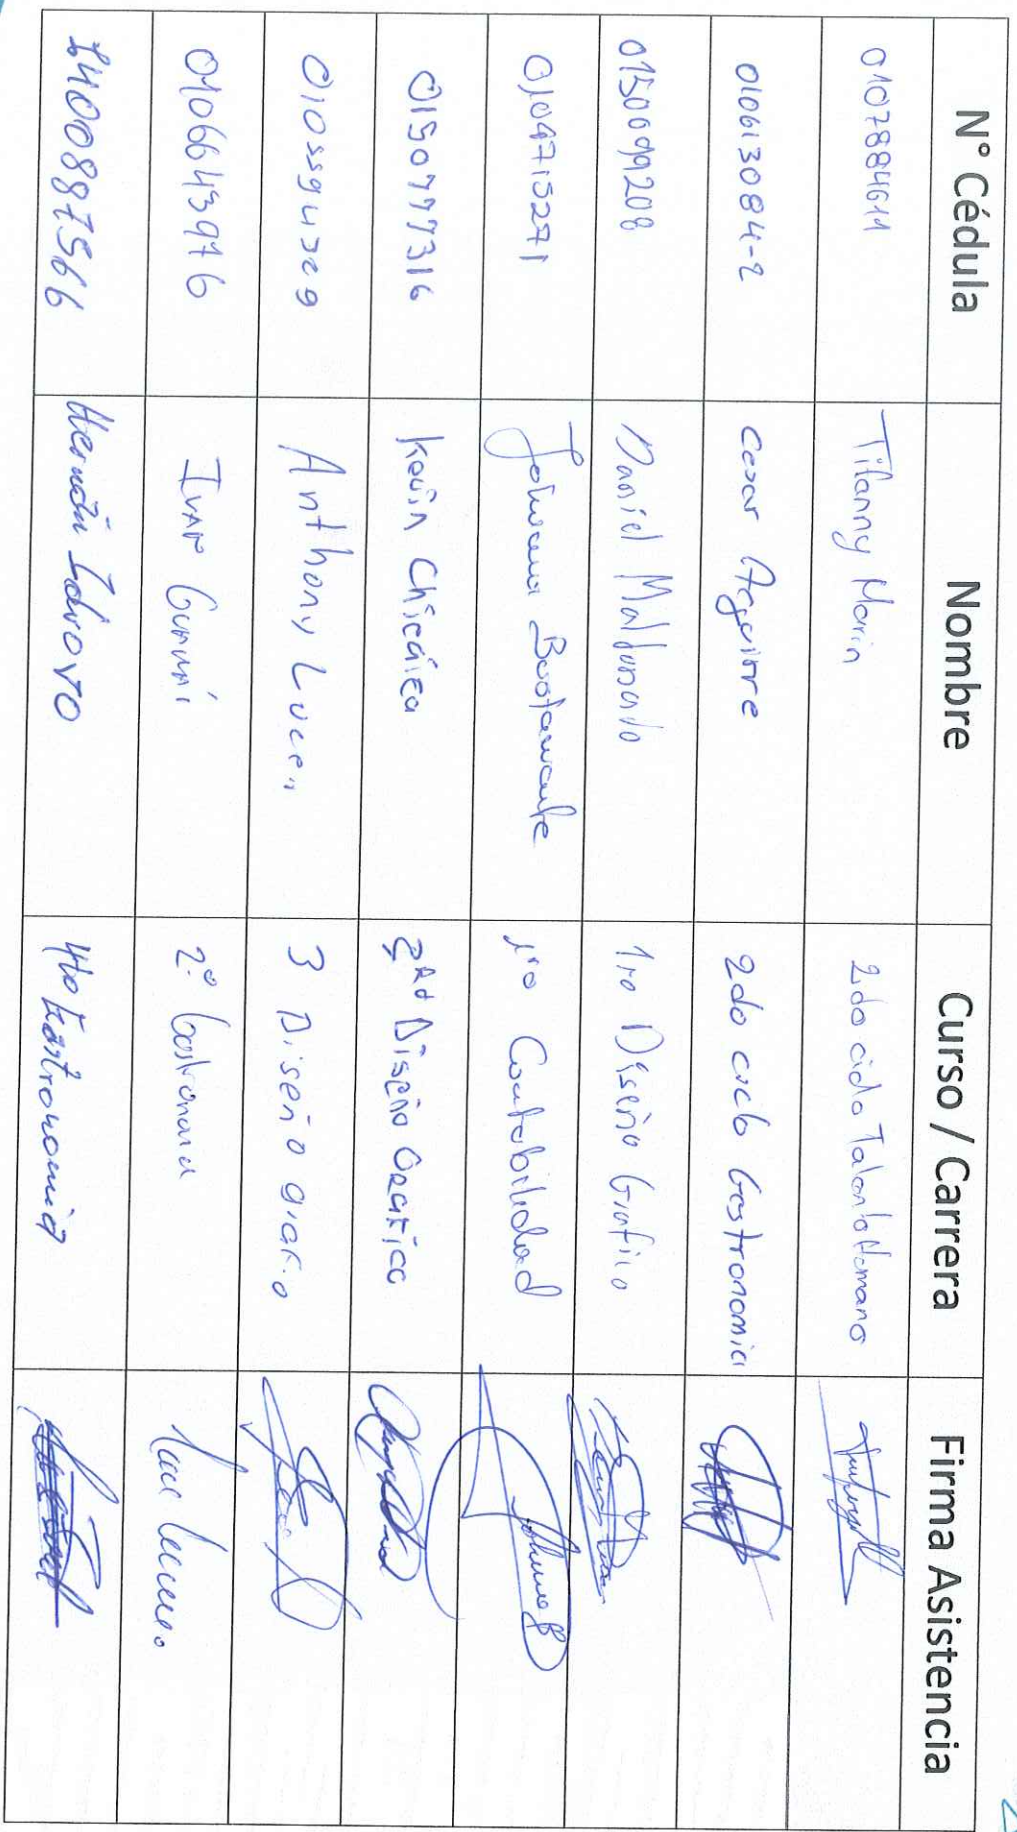 N° Cédula Nombre Curso / Carrera Firma Asistencia
0107884611 Tifanny Marin 2do ciclo Talento Humano
010613084-2 Cesar Aguirre 2do ciclo Gastronomia
0150099208 Daniel Maldonado 1ro Diseño Grafico
0104715271 Johanna Bustamante 1ro Contabilidad
0150777316 Kevin Chicaiza Diseño Grafico
Anthony 3 Diseño
0106643976 Ivan 2°
1400887566 Hernán Idrovo 4to Gastronomia